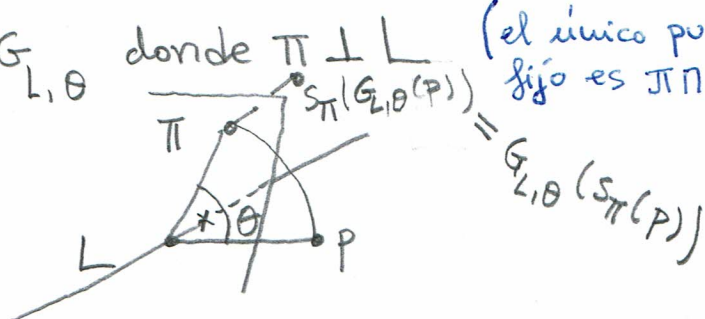 G_{L,θ} donde π ⊥ L (el único pu
fijo es π∩
S_π(G_{L,θ}(p))
= G_{L,θ}(S_π(p))
π
θ
p
L